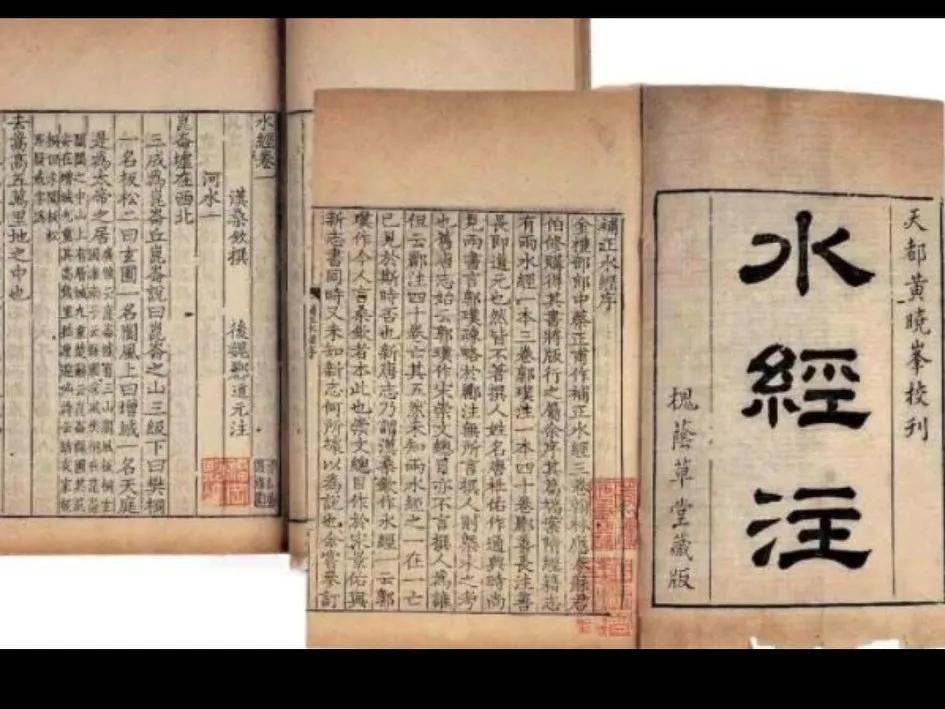 天都黃曉峯校刊
水經注
槐蔭草堂藏版
補正水經序
金禮部郎中蔡正甫作補正水經三卷翰林應奉蘇君
伯修購得其書將版行之屬余序其篇端案隋經籍志
有兩水經一本三卷郭璞注一本四十卷酈善長注善
長即道元也然皆不著撰人姓名唐杜佑作通典時尚
見兩書言郭璞疎略於酈注無所言撰人則槩未之考
也舊唐志始云郭璞作宋崇文總目亦不言撰人為誰
但云酈注四十卷亡其五然未知兩水經之一在一亡
已見於斯時否也新唐志乃謂漢桑欽作水經一云郭
璞作今人言桑欽者本此也崇文總目作於宋景祐與
新志書同時又未知新志何所據以為說也余嘗參訂
水經卷一
漢桑欽撰 後魏酈道元注
河水一
崑崙墟在西北
三成為崑崙丘崑崙說曰崑崙之山三級下曰樊桐
一名板松二曰玄圃一名閬風上曰增城一名天庭
是為太帝之居
去嵩高五萬里地之中也